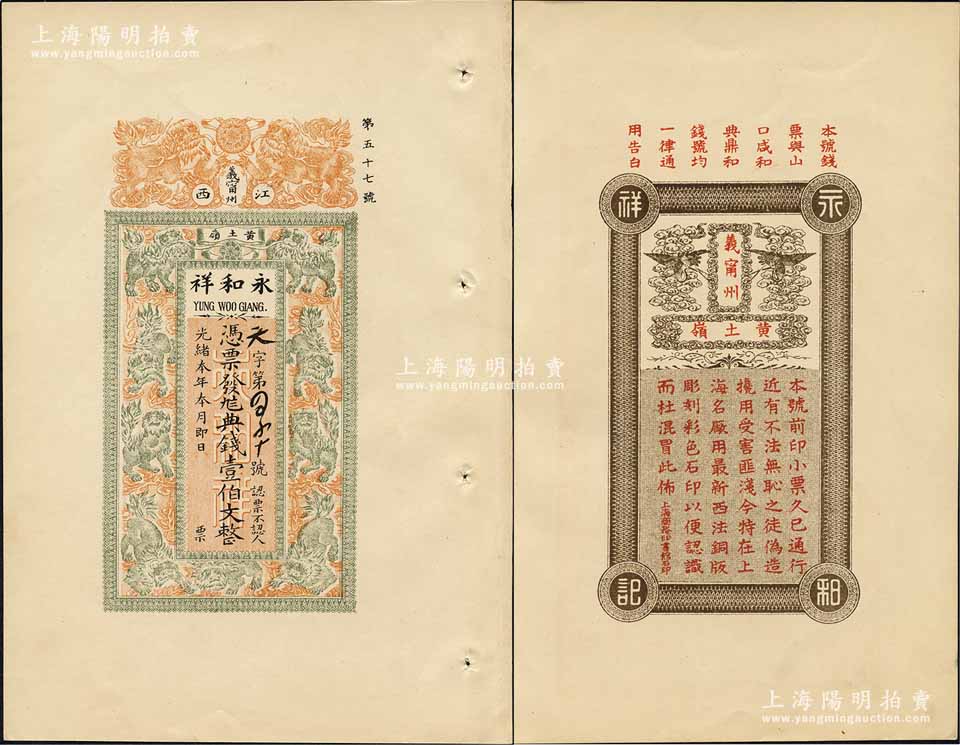 上海陽明拍賣
www.yangmingauction.com
第五十七號
江西
義甯州
黃土嶺
永和祥
YUNG WOO GIANG.
天字第 號 認票不認人
憑票發 典錢壹伯文整
光緒 年 月即日 票
上海陽明拍賣
www.yangmingauction.com
本號錢
票與山
口咸和
典鼎和
錢號均
一律通
用告白
永祥
義甯州
黃土嶺
本號前印小票久已通行
近有不法無恥之徒偽造
攙用受害匪淺今特在上
海名廠用最新西法銅版
彫刻彩色石印以便認識
而杜混冒此佈
和記
上海陽明拍賣
www.yangmingauction.com